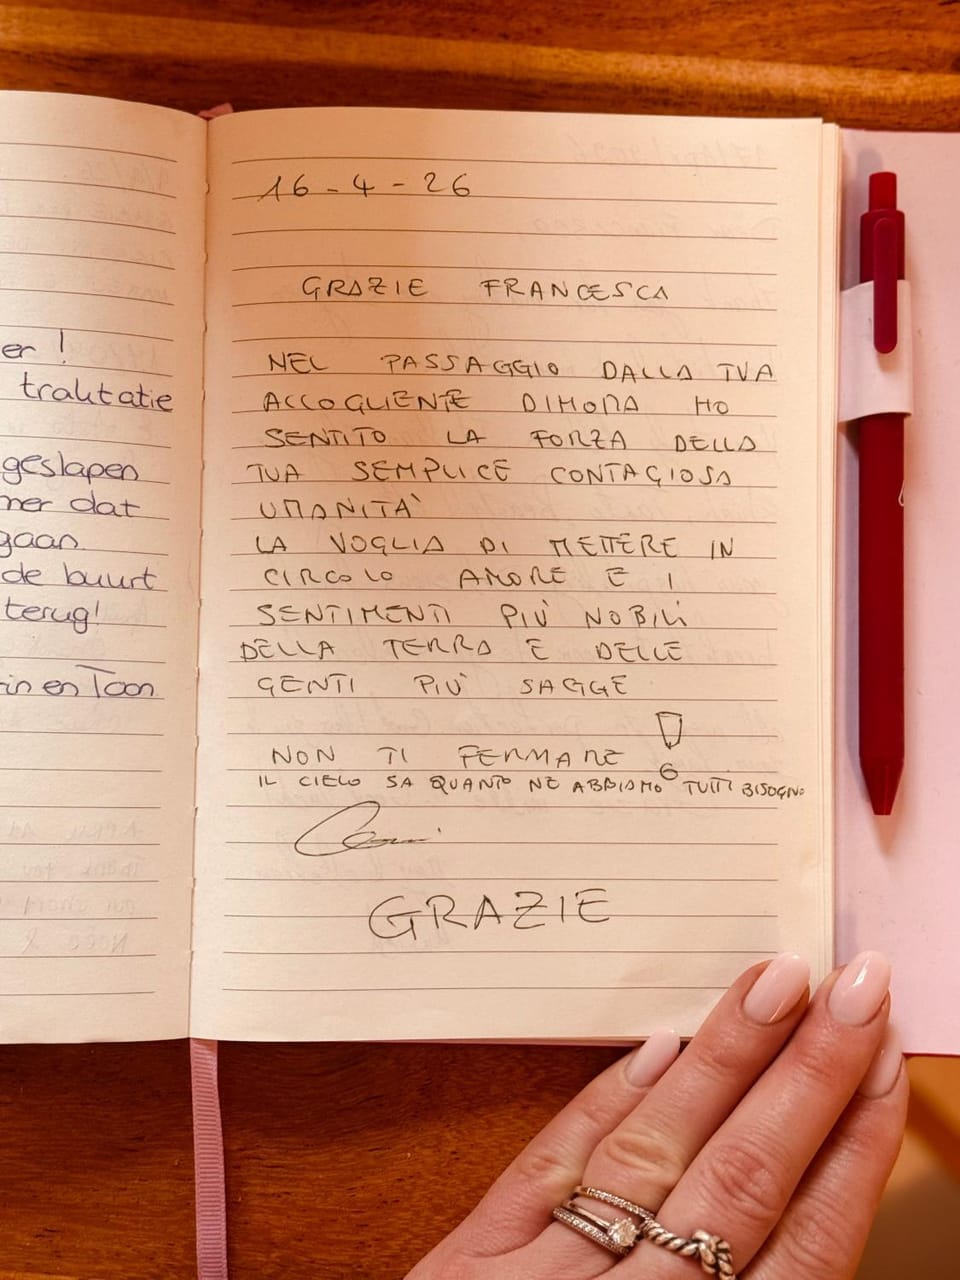 er!
traktatie
geslapen
mer dat
gaan
de buurt
terug!
in en Toon
16-4-26
GRAZIE FRANCESCA
NEL PASSAGGIO DALLA TUA
ACCOGLIENTE DIMORA HO
SENTITO LA FORZA DELLA
TUA SEMPLICE CONTAGIOSA
UMANITÀ
LA VOGLIA DI METTERE IN
CIRCOLO AMORE E I
SENTIMENTI PIÙ NOBILI
DELLA TERRA E DELLE
GENTI PIÙ SAGGE
NON TI FERMARE !
IL CIELO SA QUANTO NE ABBIAMO TUTTI BISOGNO
GRAZIE